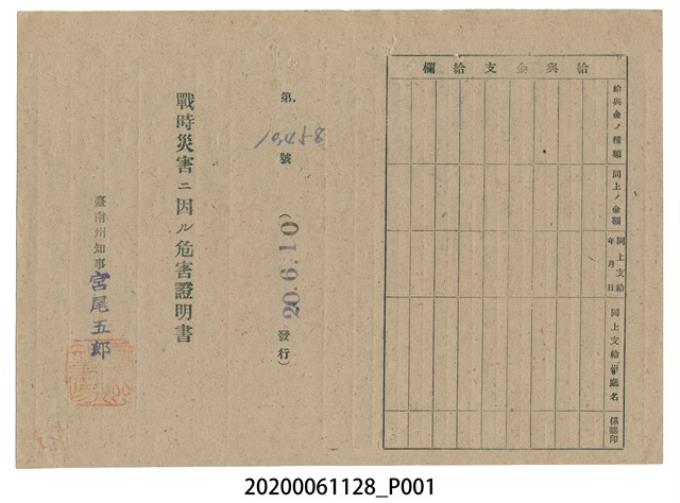 給與金支給欄
給與金ノ種類
同上ノ金額
同上支給年月日
同上支給官廳名
係認印
第
10458
號
(20.6.10發行)
戰時災害ニ因ル危害證明書
臺南州知事 宮尾五郎
20200061128_P001